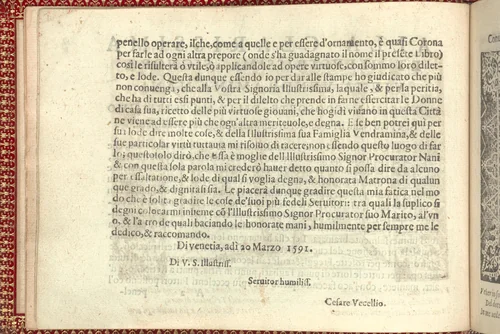 penello operare, ilche, come a quelle e per essere d'ornamento, è quasi Corona
per farle ad ogni altra prepore (onde s'ha guadagnato il nome il presẽte Libro)
così le risulterà ò vtile, ò applicandole ad opere virtuose, con sommo loro dilet-
to, e lode. Questa dunque essendo io per dar alle stampe ho giudicato che più
non conuenga; che alla Vostra Signoria Illustrissima, la quale, & per la peritia,
che ha di tutti essi punti, & per il diletto che prende in farne essercitar le Donne
di casa sua, ricetto delle più virtuose giouani, che hoggidì viuano in questa Città
ne viene ad essere più che ogn'altra meriteuole, e degna. E se ben potrei quì per
sua lode dire molte cose, & della Illustrissima sua Famiglia Vendramina, & delle
sue particolar virtù tuttauia mi risoluo di tacere, non essendo questo luogo di far
lo; questo solo dirò, che essa è moglie dell'Illustrissimo Signor Procurator Nani
& con questa sola parola mi crederò hauer detto quanto si possa dire da alcuno
per essaltatione, & lode di qual si voglia degna, & honorata Matrona di qualun
que grado, & dignità si sia. Le piacerà dunque gradire questa mia fatica nel mo
do che è solita gradire le cose de'suoi più fedeli Seruitori: tra quali la suplico si
degni colocarmi insieme cõ l'Illustrissimo Signor Procurator suo Marito, al'vn
o, & l'altro de quali baciando le honorate mani, humilmente per sempre me le
dedico, & raccomando.
Di Venetia, adì 20 Marzo 1591.
Di V. S. Illustriss.
Seruitor humiliss.
Cesare Vecellio.